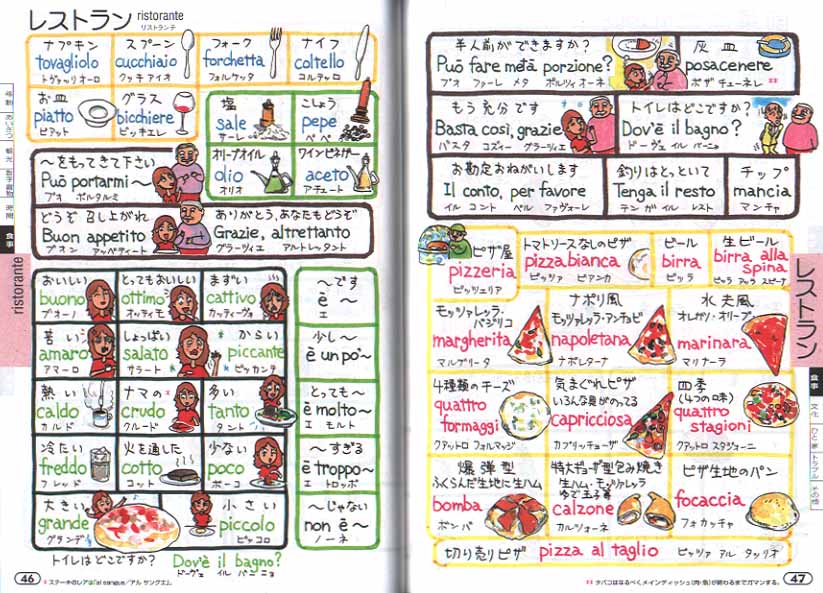 レストラン ristorante
リストランテ
ナプキン
tovagliolo
トヴァッリオーロ
スプーン
cucchiaio
クッキアイオ
フォーク
forchetta
フォルケッタ
ナイフ
coltello
コルテッロ
お皿
piatto
ピアット
グラス
bicchiere
ビッキエレ
塩
sale
サーレ
こしょう
pepe
ペペ
オリーブオイル
olio
オリオ
ワインビネガー
aceto
アチェート
〜をもってきて下さい
Può portarmi〜
プオ ポルタルミ
どうぞ召し上がれ
Buon appetito
ブオン アッペティート
ありがとう,あなたもどうぞ
Grazie, altrettanto
グラーツィエ アルトレッタント
おいしい
buono
ブオーノ
とってもおいしい
ottimo
オッティモ
まずい
cattivo
カッティーヴォ
〜です
è 〜
エ
苦い
amaro
アマーロ
しょっぱい
salato
サラート
からい
piccante
ピッカンテ
少し〜
è un po'〜
熱い
caldo
カルド
ナマの
crudo
クルード
多い
tanto
タント
とっても〜
è molto〜
エ モルト
冷たい
freddo
フレッド
火を通した
cotto
コット
少ない
poco
ポーコ
〜すぎる
è troppo〜
エ トロッポ
大きい
grande
グランデ
小さい
piccolo
ピッコロ
〜じゃない
non è〜
ノーネ
トイレはどこですか? Dov'è il bagno?
ドーヴェ イル バーニョ
46
ristorante
食事
半人前ができますか?
Può fare metà porzione?
プオ ファーレ メタ ポルツィオーネ
灰皿
posacenere
ポザチェーネレ
もう充分です
Basta così, grazie
バスタ コズィー グラーツィエ
トイレはどこですか?
Dov'è il bagno?
ドーヴェ イル バーニョ
お勘定おねがいします
Il conto, per favore
イル コント ペル ファヴォーレ
釣りはとっといて
Tenga il resto
テンガ イル レスト
チップ
mancia
マンチャ
ピザ屋
pizzeria
ピッツェリア
トマトソースなしのピザ
pizza bianca
ピッツァ ビアンカ
ビール
birra
ビッラ
生ビール
birra alla spina
ビッラ アッラ スピーナ
モッツァレッラ・バジリコ
margherita
マルゲリータ
ナポリ風
モッツァレッラ・アンチョビ
napoletana
ナポレターナ
水夫風
オレガノ・オリーブ
marinara
マリナーラ
4種類のチーズ
quattro formaggi
クアットロ フォルマッジ
気まぐれピザ
いろんな具がのってる
capricciosa
カプリッチョーザ
四季
(4つの味)
quattro stagioni
クアットロ スタジョーニ
爆弾型
ふくらんだ生地に生ハム
bomba
ボンバ
特大ギョーザ型包み焼き
生ハム・モッツァレラ
ゆで玉子等
calzone
カルツォーネ
ピザ生地のパン
focaccia
フォカッチャ
切り売りピザ pizza al taglio ピッツァ アル タッリオ
※※ タバコはなるべく、メインディッシュ(肉・魚)が終わるまでガマンする。
47
レストラン
食事
文化
トラブル
その他